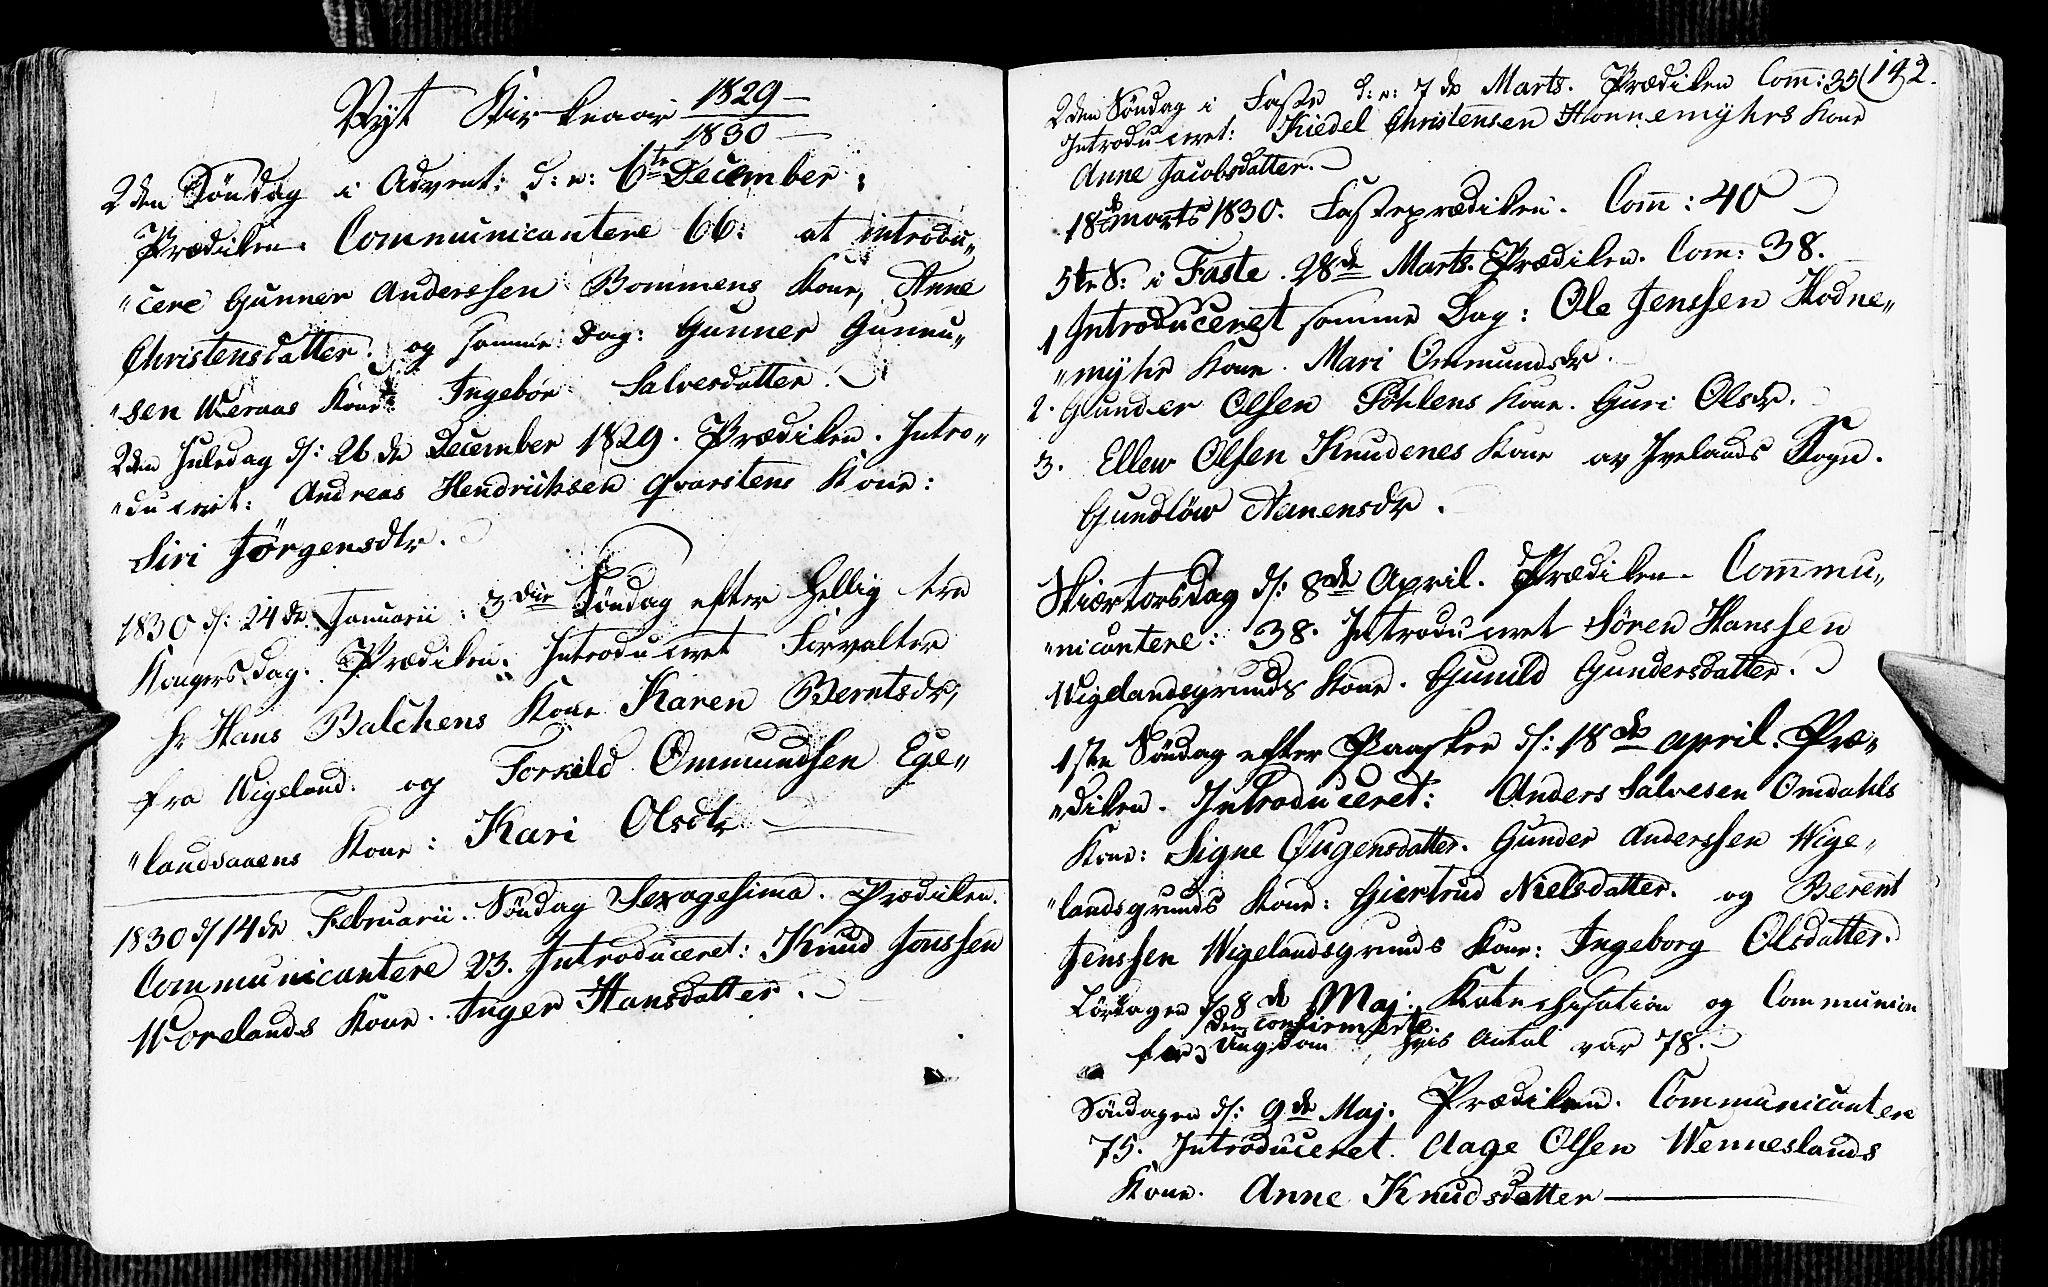 Nyt Kirkeaar 1829
1830
2den Söndag i Advent: d: e: 6te December:
Prædiken. Communicantere 66: at introdu„
„cere Gunner Anderssen Bommens Kone, Anne
Christensdatter. og samme Dag: Gunner Gunnu„
„sen Weraas Kone: Ingebór Salvesdatter.
2den Juledag d: 26de December 1829. Prædiken. Intro„
„duceret: Andreas Hendrichsen Qvarstens Kone:
Siri Jörgensdtr.
1830 d: 24de Januarii: 3die Söndag efter Hellig tre
Kongers dag. Prædiken: Introduceret Forvalter
Hr Hans Balchens Kone Karen Berntsdr,
fra Wigeland. og Torkild Ommundsen Ege„
„landsaaens Kone: Kari Olsdtr
1830 d 14de Februarii. Söndag Sexagesima. Prædiken.
Communicantere 23. Introduceret: Knud Jonssen
Worelands Kone. Inger Hansdatter.
142.
2den Söndag i Faste d: e: 7de Marts. Prædiken Com: 35
Introduceret: Kiedel Christensen Honnemyhrs Kone
Anne Jacobsdatter.
18de marts 1830. Fasteprædiken. Com: 40
5te S: i Faste. 28de Marts. Prædiken. Com: 38.
1 Introduceret samme Dag: Ole Jenssen Hodne„
„myhr Kone. Mari Ommundsdr.
2. Gunder Olsen Föhlens Kone. Guri Olsdr.
3. Ellew Olsen Knudenes Kone av Ivelands Sogn.
Gundlöw Aanensdr.
Skiærtorsdag d: 8de April. Prædiken. Commu„
„nicantere: 38. Introduceret Sören Hanssen
Wigelandsgrunds Kone. Gunild Gundersdatter.
1ste Söndag efter Paaske d: 18de april. Præ„
„diken. Introduceret: Anders Salvesen Omdahls
Kone: Signe Øugensdatter. Gunder Anderssen Wige„
„landsgrunds Kone: Giertrud Nielsdatter. og Berent
Jenssen Wigelandsgrunds Kone: Ingeborg Olsdatter.
Lördagen d 8de Maj. Katechisation og Communion
for den confirmerte Ungdom, hvis Antal var 78.
Söndagen d: 9de Maj. Prædiken. Communicantere
75. Introduceret. Aage Olsen Wenneslands
Kone. Anne Knudsdatter